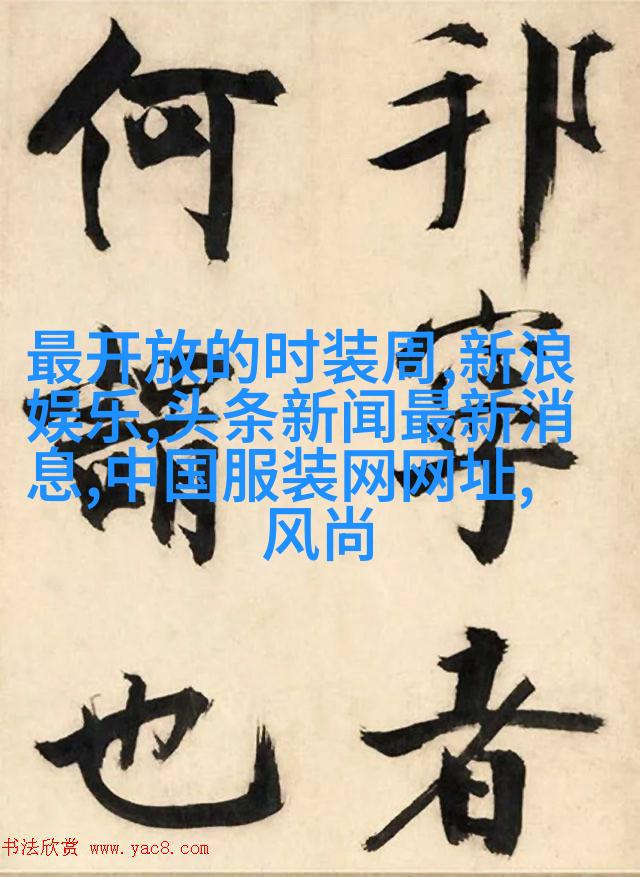 邦寧者
何謂也
最开放的时装周,新浪
娱乐,头条新闻最新消
息,中国服装网网址,
风尚
书法欣赏 www.yac8.com